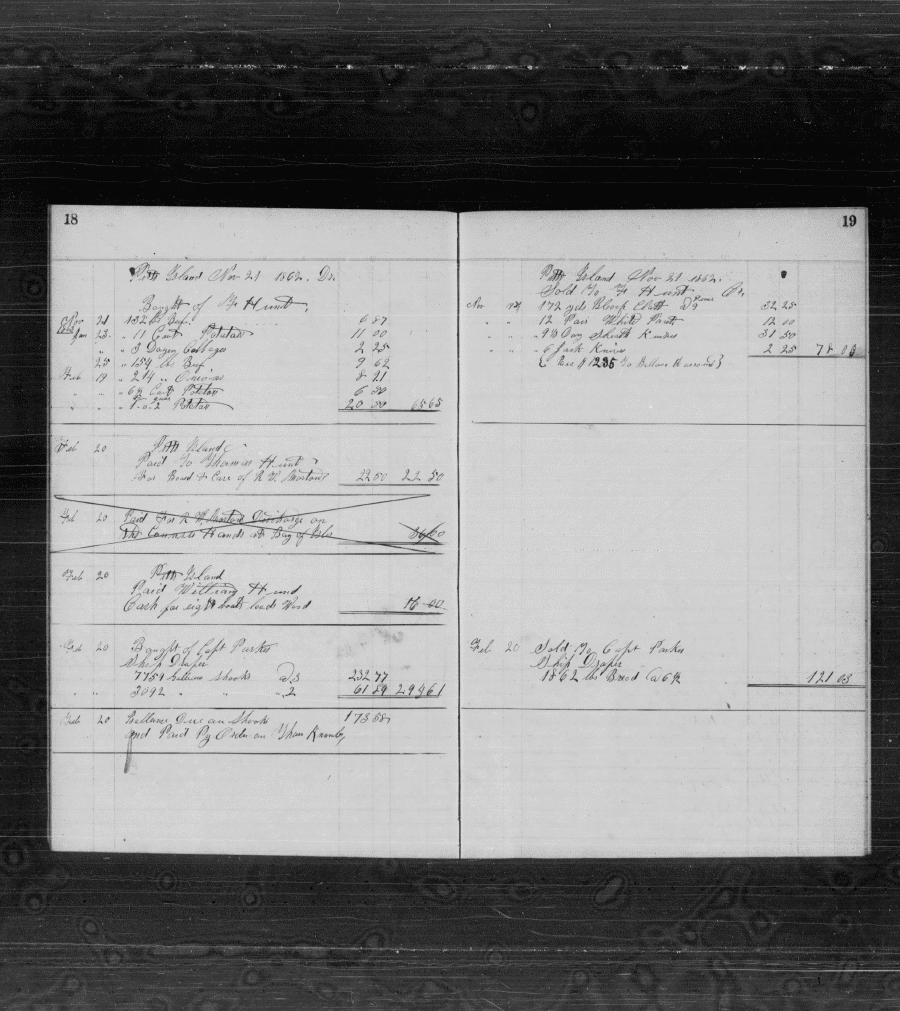 18
Pitt Island Nov 21 1862. Dr.
Bought of F Hunt
Nov 21 132 lbs Beef 6 87
1863 Jan 23 " 11 Cwt Potatoes 11 00
" " 3 Dozen Cabbages 2 25
25 " 154 lbs Beef 9 62
Feb 19 " 214 " Onions 8 21
" " " 6½ Cwt Potatoes 6 50
" " " Potatoes 20 50 65 65
Feb 20 Pitt Island
Paid To Thomas Hunt
For Board & Care of R W Morton 22 50 22 50
Feb 20 Paid For R W Morton Discharge on
the Hands at Bay of Isles
Feb 20 Pitt Island
Paid William Hund
Cash for eight boats loads Wood 16 00
Feb 20 Bought of Capt Parker
Ship Draper
7759 Gallons Shooks @ 3 232 77
" " 3092 " " " 2 61 89 29961
Feb 20 Ballance Due on Shooks 173 58
and Paid By Order on
19
Pitt Island Nov 21 1862.
Sold To F Hunt Cr.
Nov 172 yds Cloth 32 25
" " 12 Pair White Pants 12 00
" " Doz Sheath Knives 31 50
" " 6 Jack Knives 2 25 78 00
{ 1235 To Ballance }
Feb 20 Sold To Capt Parker
Ship Draper
1862 lbs Bread @ 6½ 121 03